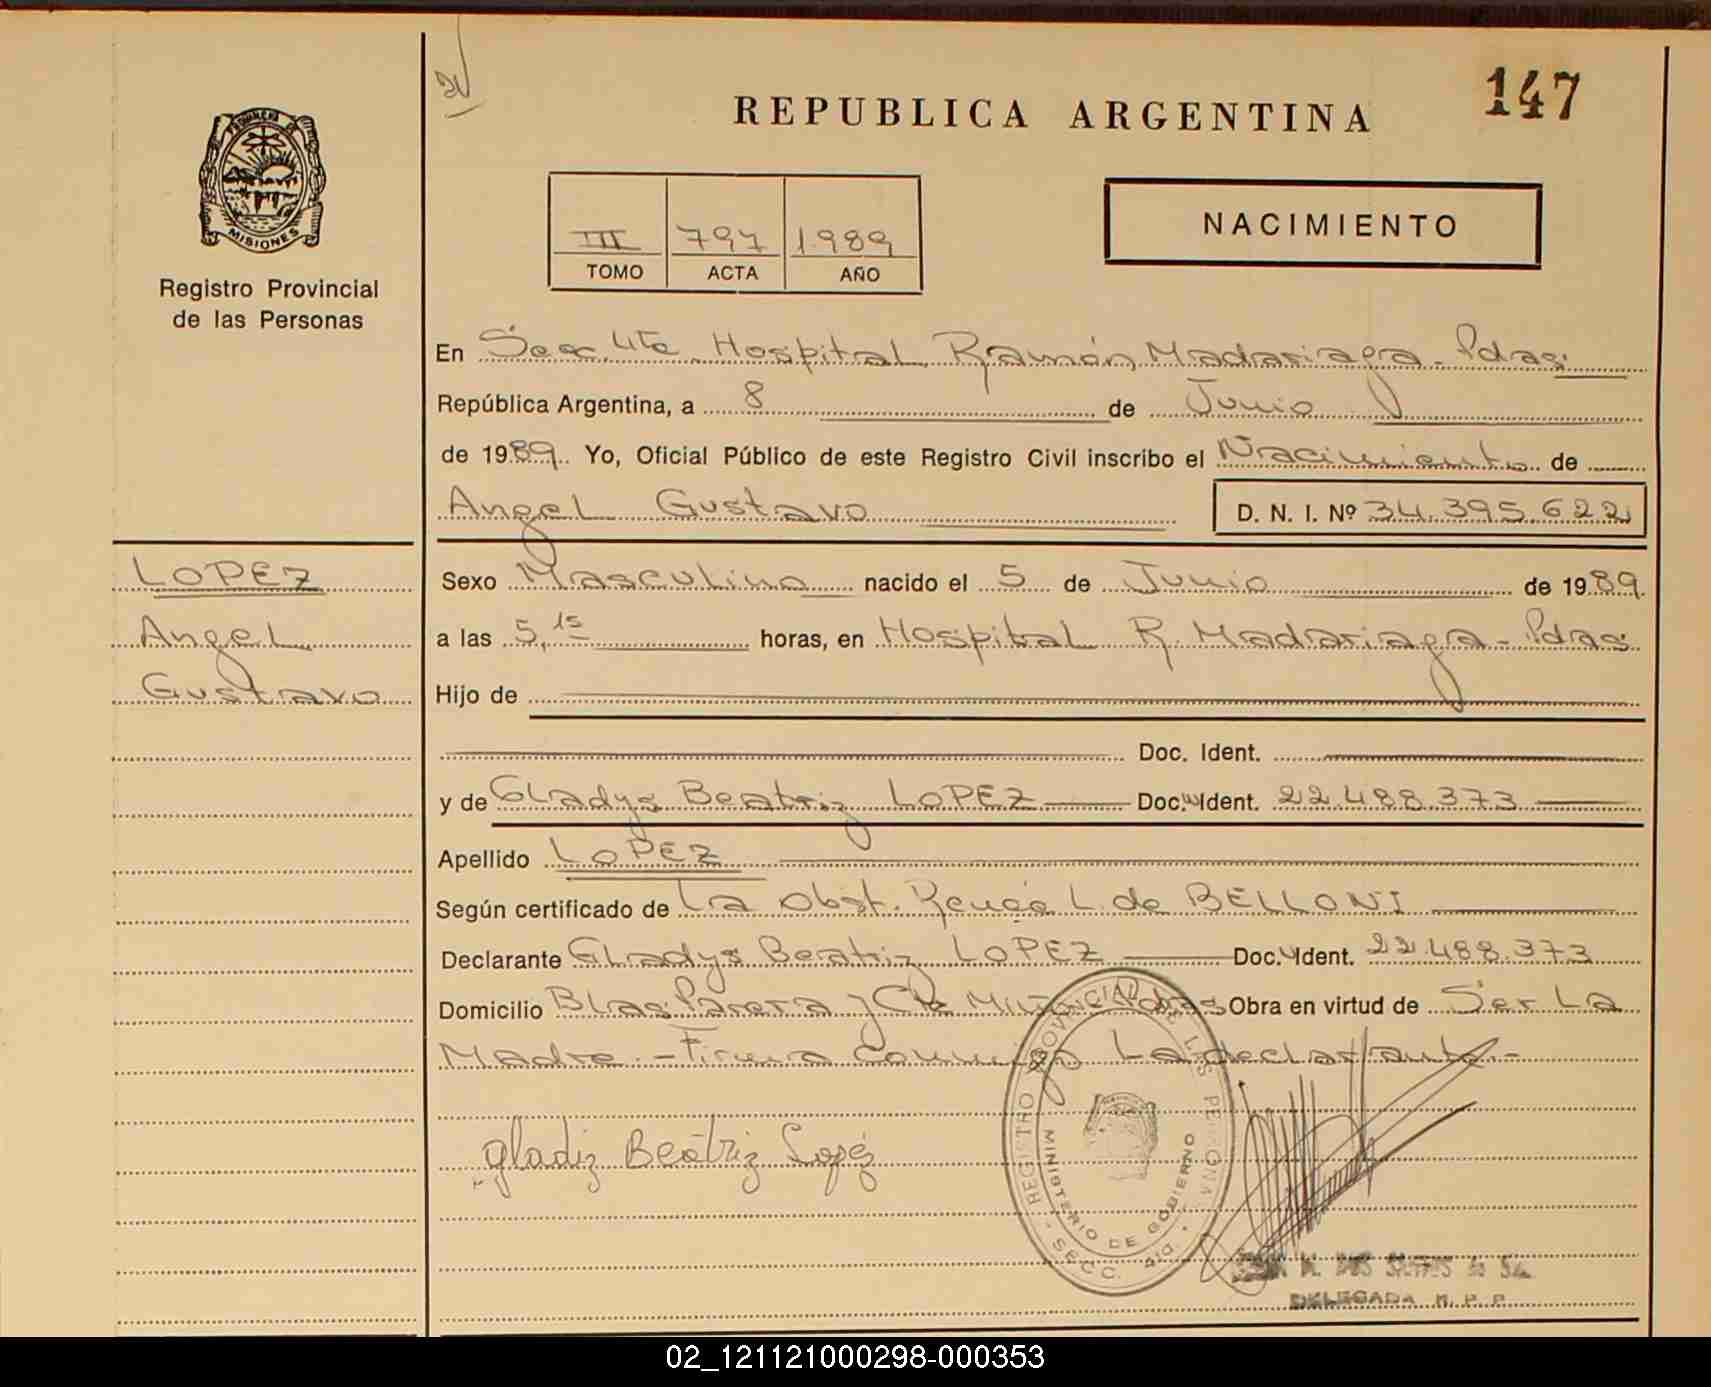 147
REPUBLICA ARGENTINA
PROVINCIA DE
MISIONES
Registro Provincial
de las Personas
III 797 1989
TOMO ACTA AÑO
NACIMIENTO
En Secc. 4ta Hospital Ramón Madariaga - Pdas.
República Argentina, a 8 de Junio
de 1989. Yo, Oficial Público de este Registro Civil inscribo el Nacimiento de
Angel Gustavo
D. N. I. Nº 34.395.622
LOPEZ
Angel
Gustavo
Sexo Masculino nacido el 5 de Junio de 1989.
a las 5,15 horas, en Hospital R. Madariaga - Pdas.
Hijo de
Doc. Ident.
y de Gladys Beatriz LOPEZ Doc. Ident. 22.488.373
Apellido LOPEZ
Según certificado de La Obst. Renée L. de BELLONI
Declarante Gladys Beatriz LOPEZ Doc. Ident. 22.488.373
Domicilio Blas Parera y Pdas Obra en virtud de Ser La
Madre - Firma Conmigo La declarante.-
gladiz Beátriz Lopéz
REGISTRO PROVINCIAL DE LAS PERSONAS
MINISTERIO DE GOBIERNO
SECC. 4ta.
DELEGADA R. P. P.
02_121121000298-000353